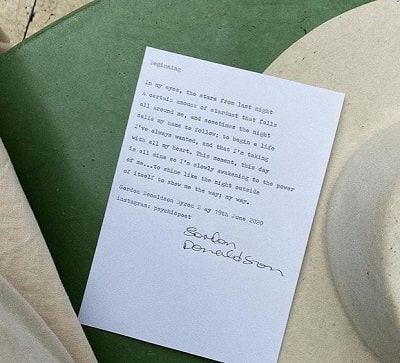 Beginning
In my eyes, the stars from last night
A certain amount of stardust that falls
all around me, and sometimes the night
calls my name to follow; to begin a life
I've always wanted, and that I'm taking
with all my heart. This moment, this day
is all mine so I'm slowly awakening to the power
of me...to shine like the night outside
of itself to show me the way; my way.
Gordon Donaldson Byron B ay 19th June 2020
instagram: psychicpoet
Gordon
Donaldson